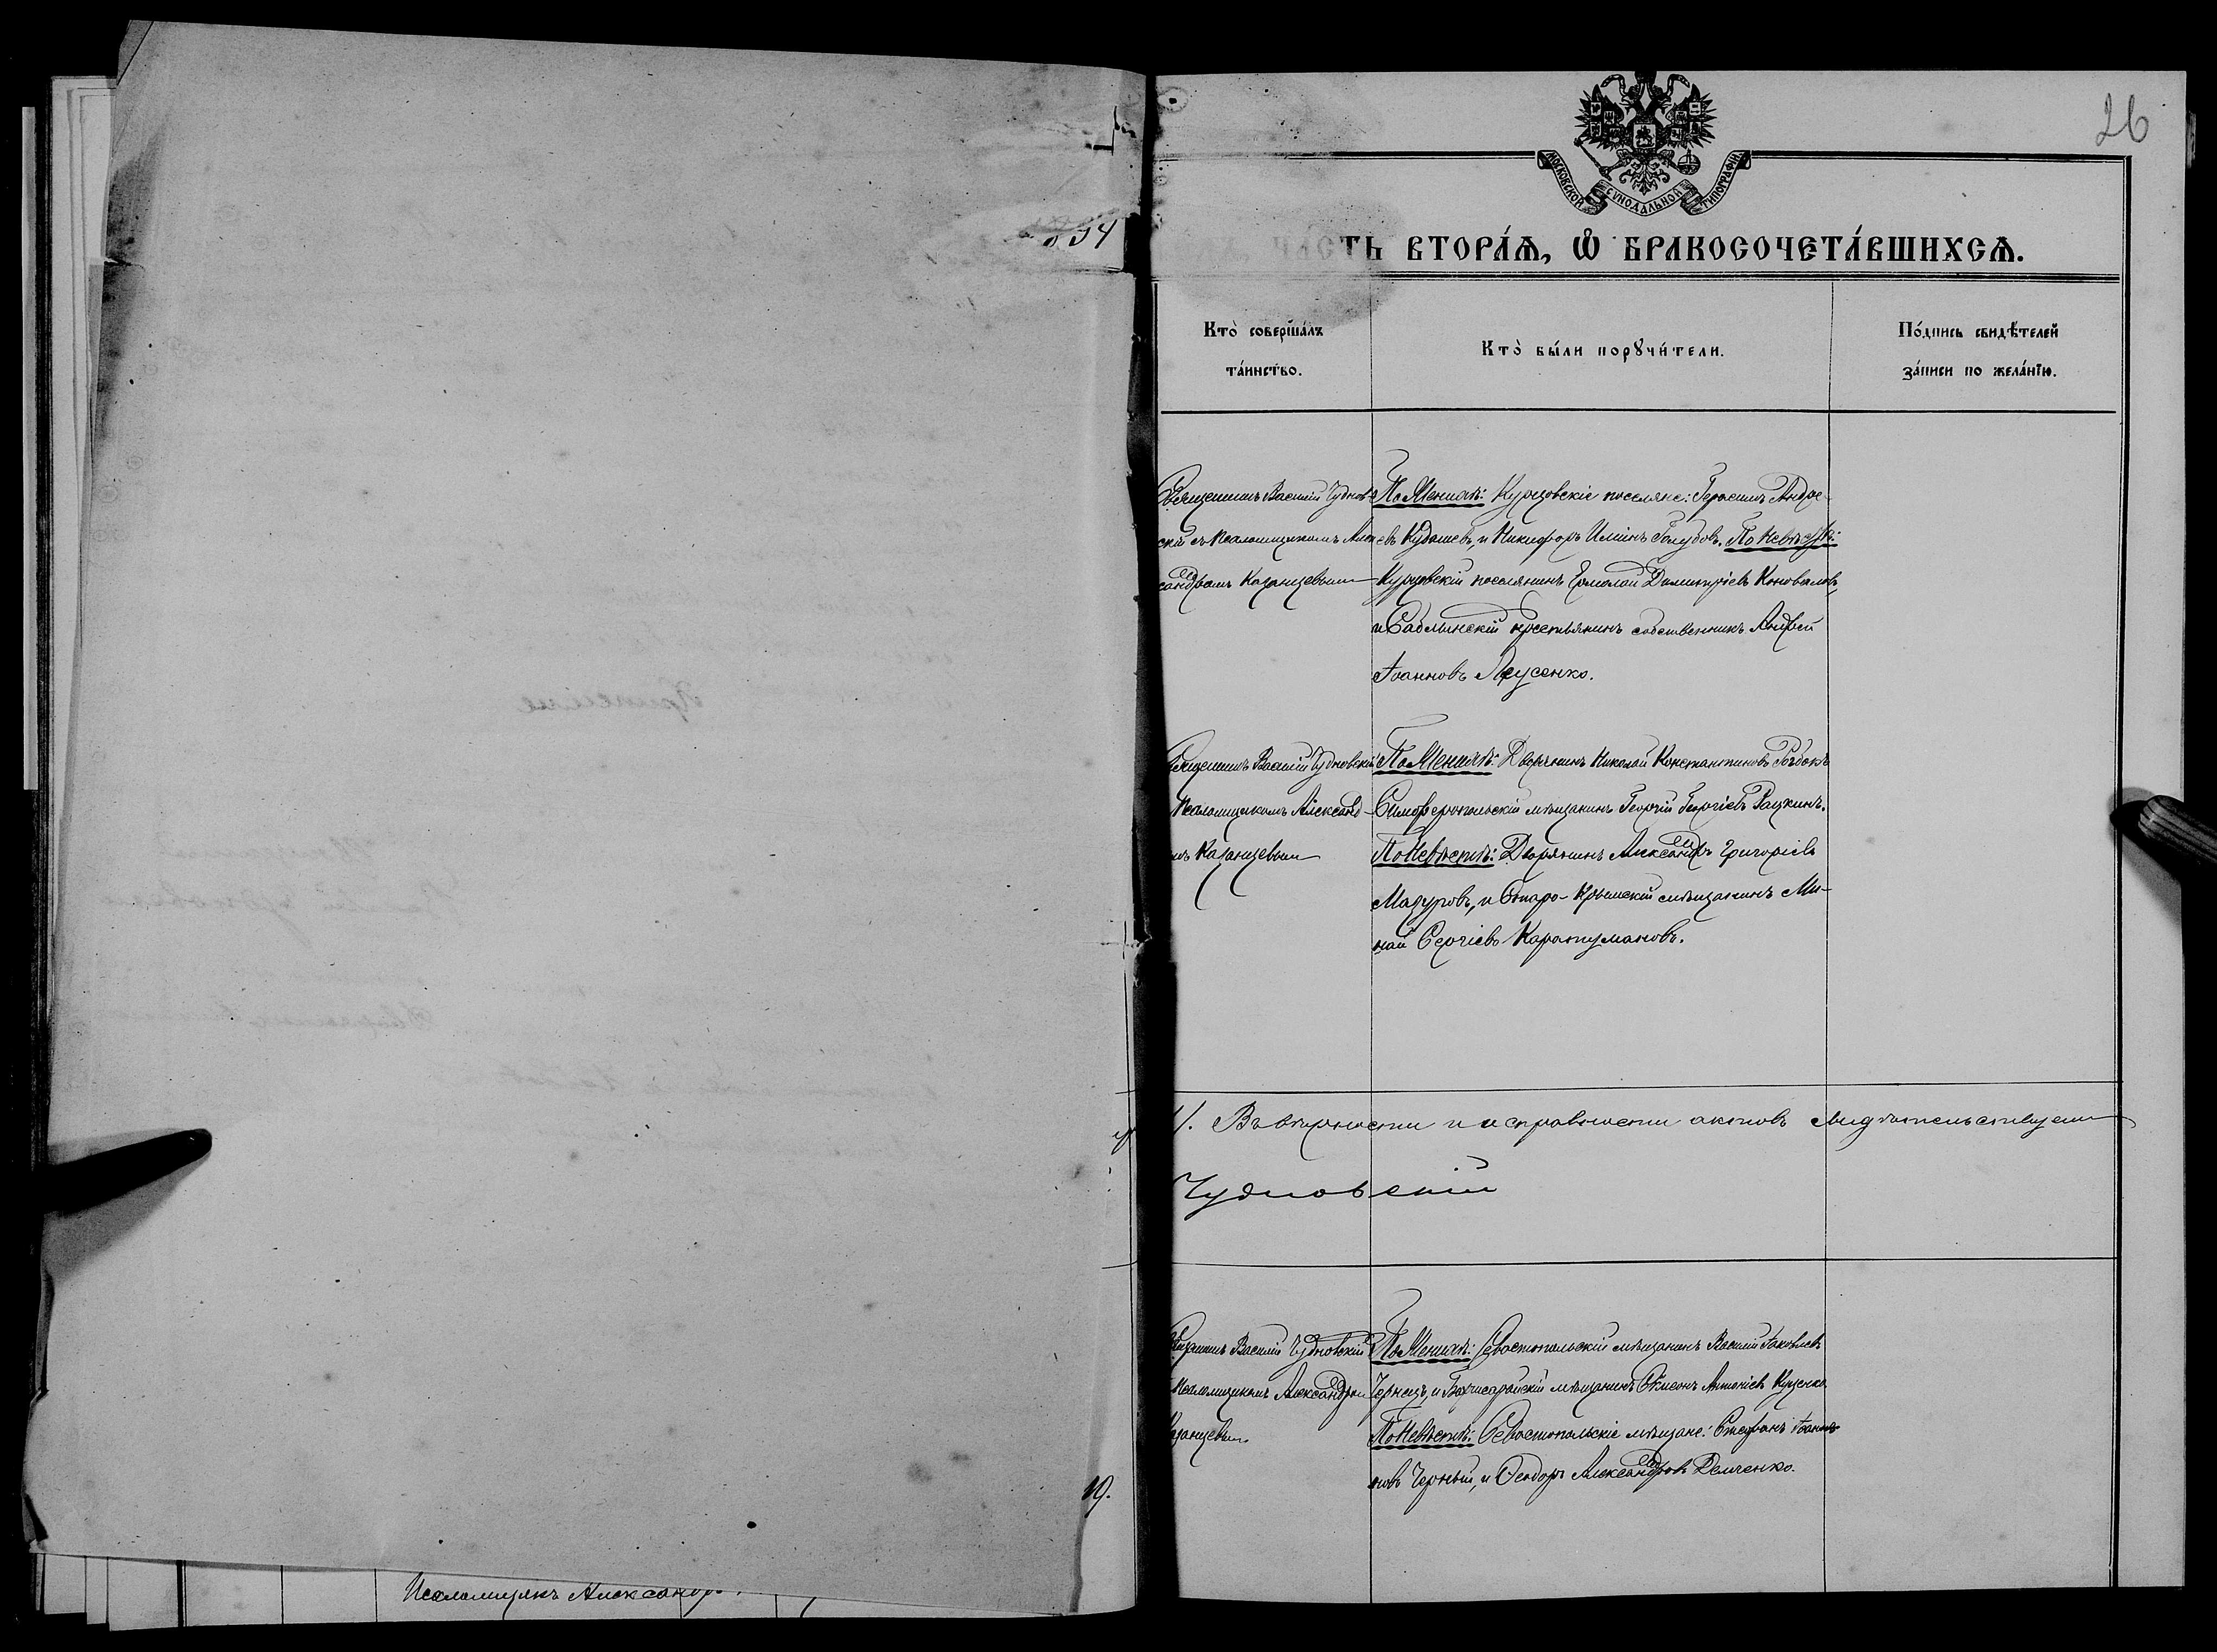 26
МОСКОВСКОЙ СѴНОДАЛЬНОЙ ТИПОГРАФІИ
ЧАСТЬ ВТОРА́Ѧ, Ѽ БРАКОСОЧЕТА́ВШИХСѦ.
Кто̀ соверша́лъ
та́инство.
Кто̀ бы́ли порꙋчи́тели.
По́дпись свидѣ́телей
за́писи по жела́нїю.
Священникъ Василій Чуднов-
скій съ Псаломщикомъ Алек-
сандромъ Казанцевым
По Женихѣ: Курцовскіе поселяне: Герасимъ Андре-
евъ Кудашевъ, и Никифоръ Илiинъ Голубовъ. По Невѣстѣ:
Курцовскій поселянинъ Ермолай Димитріевъ Коновалов,
и Саблынскій крестьянинъ собственникъ Андрей
Іоанновъ Лрусенко.
Священникъ Василій Чудновскій
Псаломщикомъ Александ-
мъ Казанцевым
По Женихѣ: Дворянинъ Николай Константиновъ
Симферопольскій мѣщанинъ Георгій Георгіевъ Рацкинъ.
По Невѣстѣ: Дворянинъ Александръ Григоріевъ
Мазуровъ, и Старо-Крымскій мѣщанинъ Ми-
най Сергіевъ Каратумановъ.
Въ вѣрности и исправности актовъ свидѣтельствуем
Чудновскій
Священникъ Василій Чудновскій
Псаломщикомъ Александром
Казанцевым
По Женихѣ: Севастопольскій мѣщанинъ Василій Іаковлевъ
Чернецъ, и Бахчисарайскій мѣщанинъ Антоніевъ Куценко
По Невѣстѣ: Севастопольскіе мѣщане: Стефанъ Іоан-
новъ Черный, и Ѳеодоръ Александровъ Демченко.
19.
Псаломщикъ Александръ